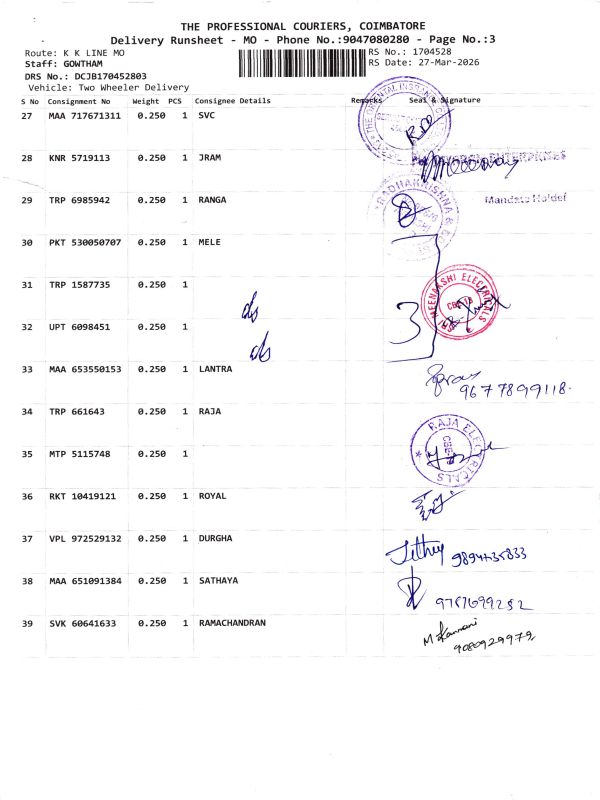 THE PROFESSIONAL COURIERS, COIMBATORE
Delivery Runsheet - MO - Phone No.:9047080280 - Page No.:3
Route: K K LINE MO
RS No.: 1704528
Staff: GOWTHAM
RS Date: 27-Mar-2026
DRS No.: DCJB170452803
Vehicle: Two Wheeler Delivery
S No Consignment No Weight PCS Consignee Details Remarks Seal & Signature
27 MAA 717671311 0.250 1 SVC
28 KNR 5719113 0.250 1 JRAM
ENTERPRISES
29 TRP 6985942 0.250 1 RANGA
Mandate Holder
RADHAKRISHNA &
30 PKT 530050707 0.250 1 MELE
31 TRP 1587735 0.250 1
MEENAKSHI ELECTRICALS
32 UPT 6098451 0.250 1
3
33 MAA 653550153 0.250 1 LANTRA
9677899118.
34 TRP 661643 0.250 1 RAJA
RAJA ELECTRICALS
35 MTP 5115748 0.250 1
36 RKT 10419121 0.250 1 ROYAL
37 VPL 972529132 0.250 1 DURGHA
38 MAA 651091384 0.250 1 SATHAYA
39 SVK 60641633 0.250 1 RAMACHANDRAN
M Kannani
9080929979,